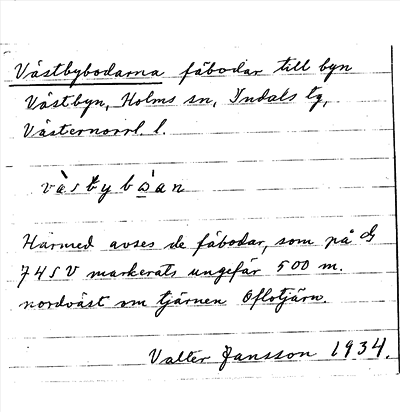 Västbybodarna fäbodar till byn
Västbyn, Holms sn, Indals tg,
Västernorrl. l.
vàstby bȯ̲an
Härmed avses de fäbodar, som på
74 SV markerats ungefär 500 m.
nordväst om tjärnen Oflotjärn.
Valter Jansson 1934.